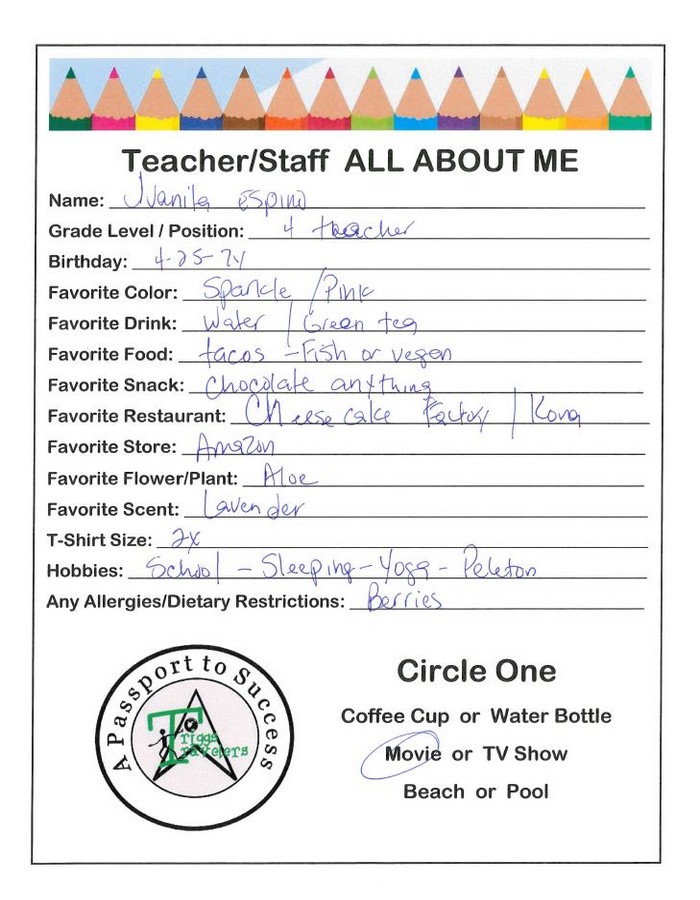 Teacher/Staff ALL ABOUT ME
Name: Juanita Espino
Grade Level / Position: 4 teacher
Birthday: 4-25-74
Favorite Color: Sparkle / Pink
Favorite Drink: Water / Green tea
Favorite Food: tacos - Fish or vegan
Favorite Snack: Chocolate anything
Favorite Restaurant: Cheese cake Factory / Kona
Favorite Store: Amazon
Favorite Flower/Plant: Aloe
Favorite Scent: Lavender
T-Shirt Size: 2x
Hobbies: School - Sleeping - Yoga - Peleton
Any Allergies/Dietary Restrictions: Berries
A Passport to Success
Triggs
Travelers
Circle One
Coffee Cup or Water Bottle
Movie or TV Show
Beach or Pool